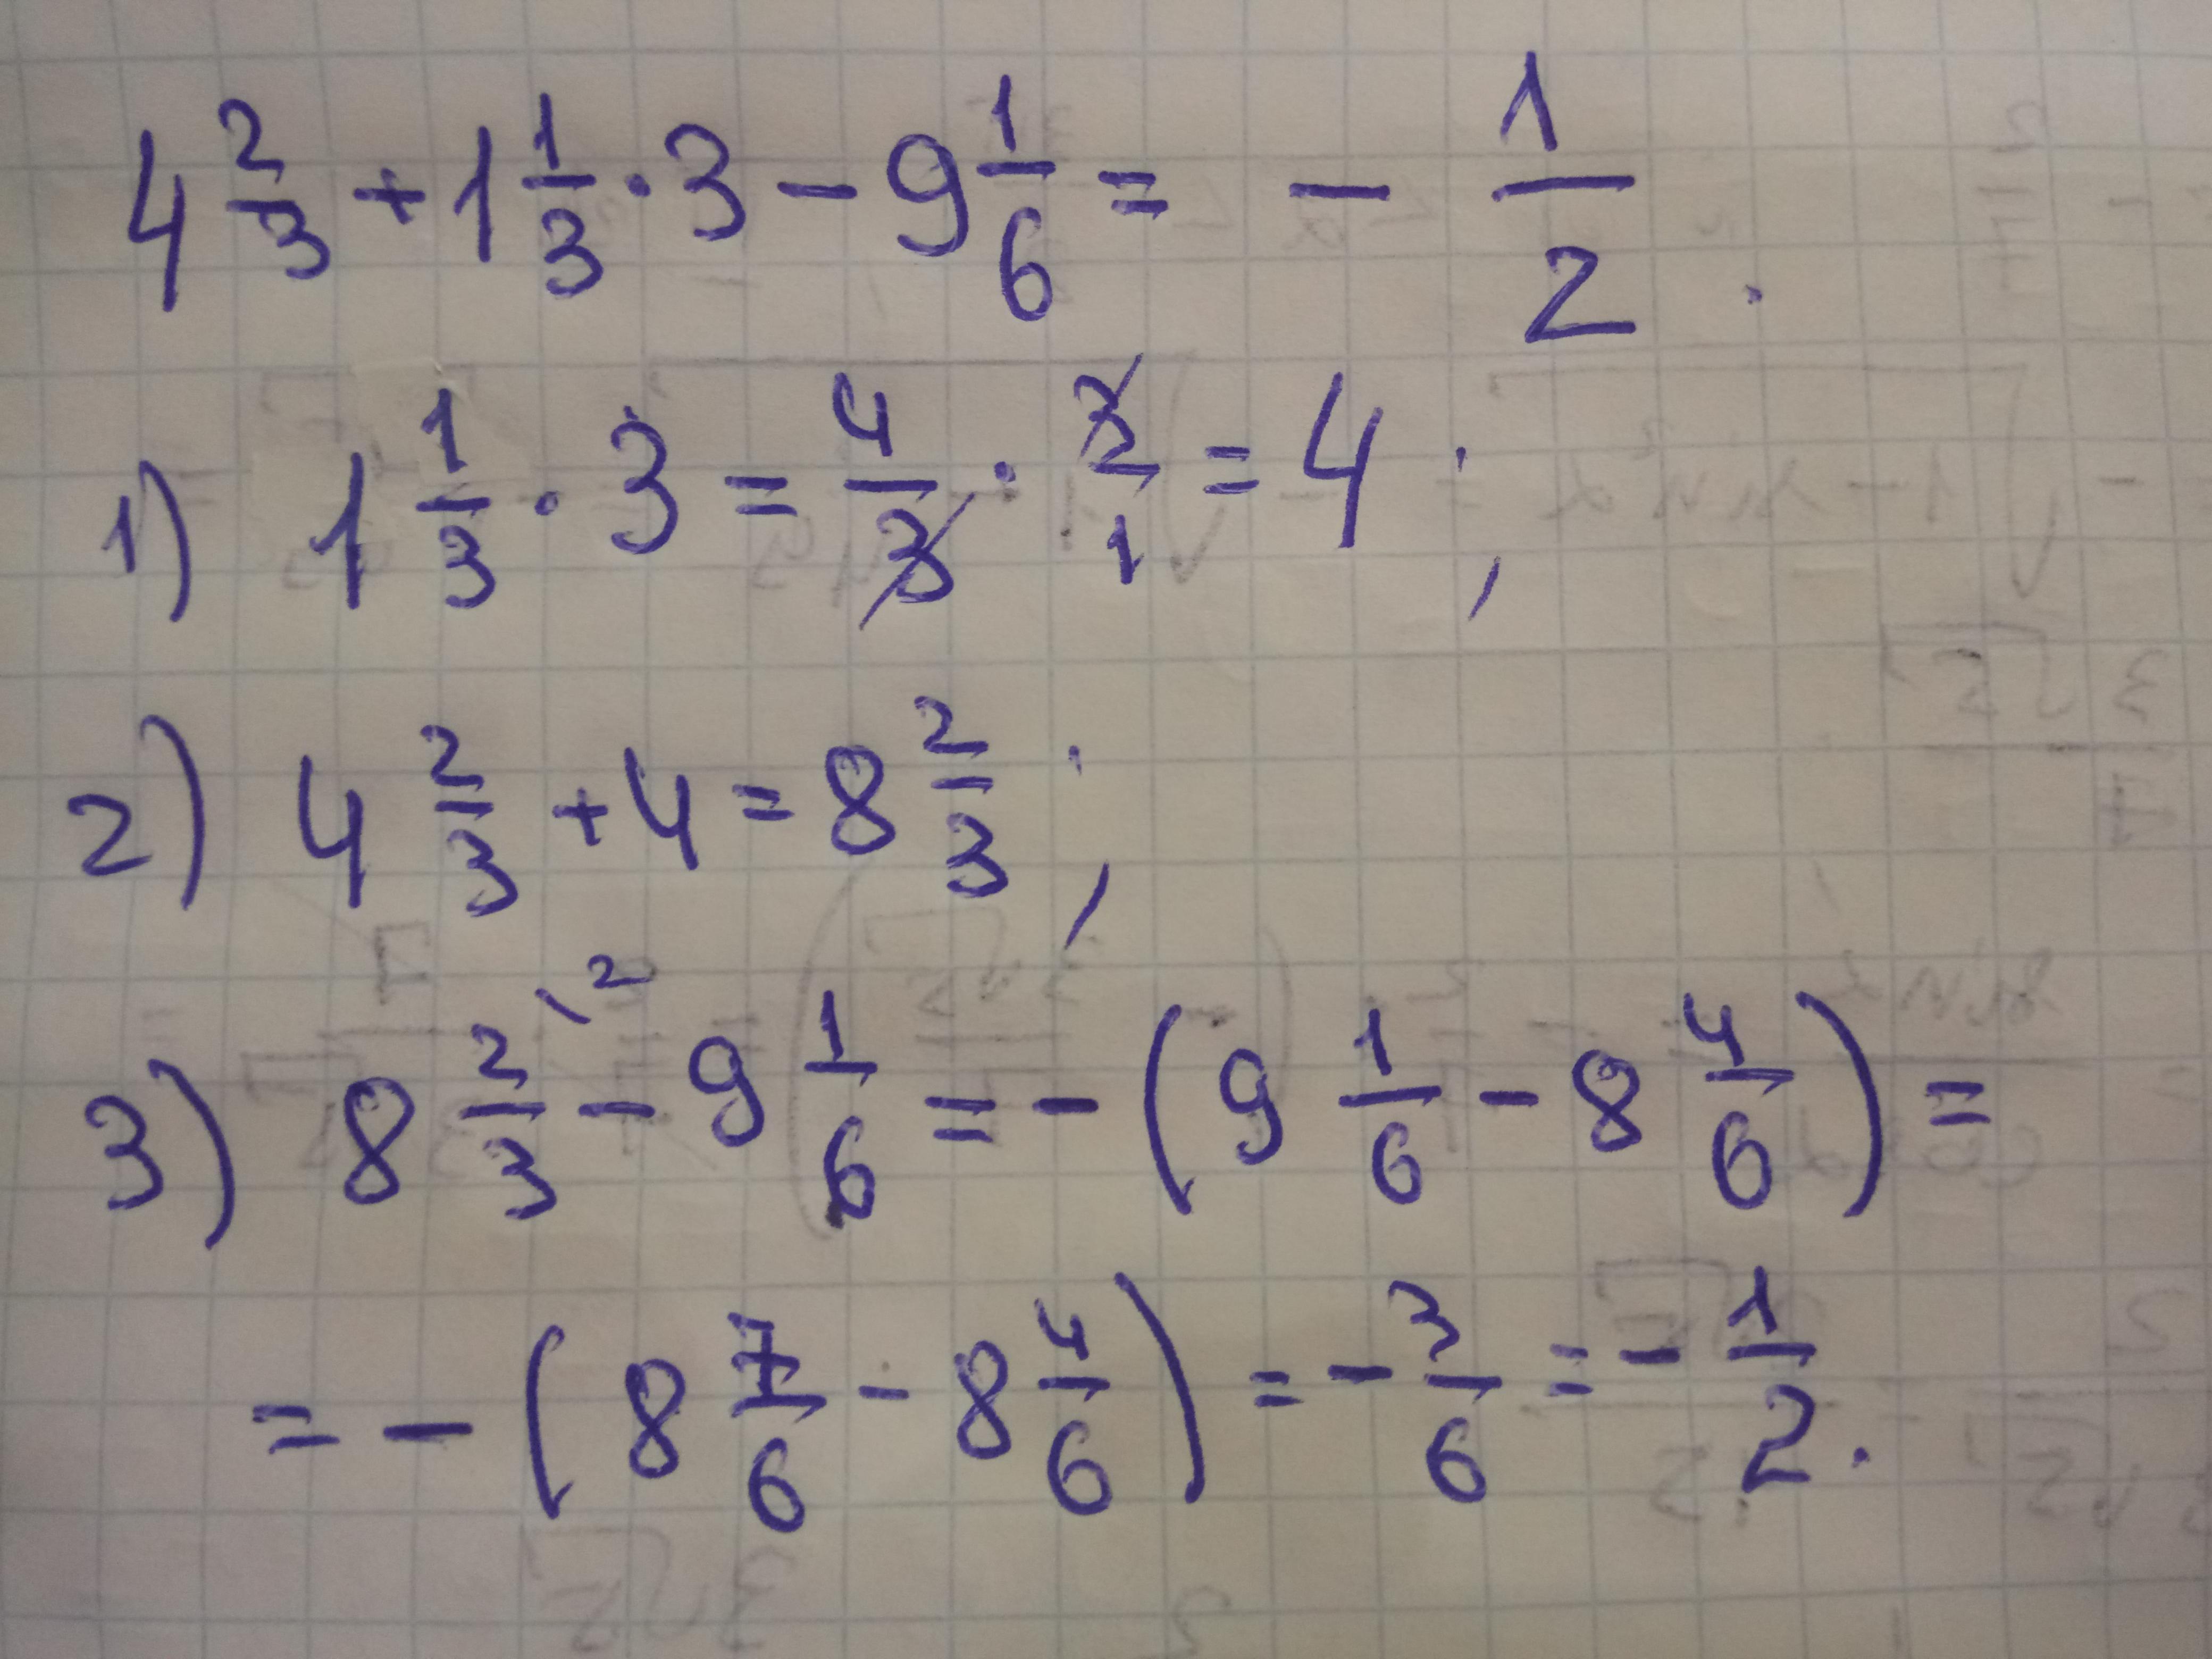 4 2/3 + 1 1/3 · 3 - 9 1/6 = - 1/2.
1) 1 1/3 · 3 = 4/3 · 3/1 = 4;
2) 4 2/3 + 4 = 8 2/3;
3) 8 2/3 \2 - 9 1/6 = - (9 1/6 - 8 4/6) =
= - (8 7/6 - 8 4/6) = - 3/6 = - 1/2.